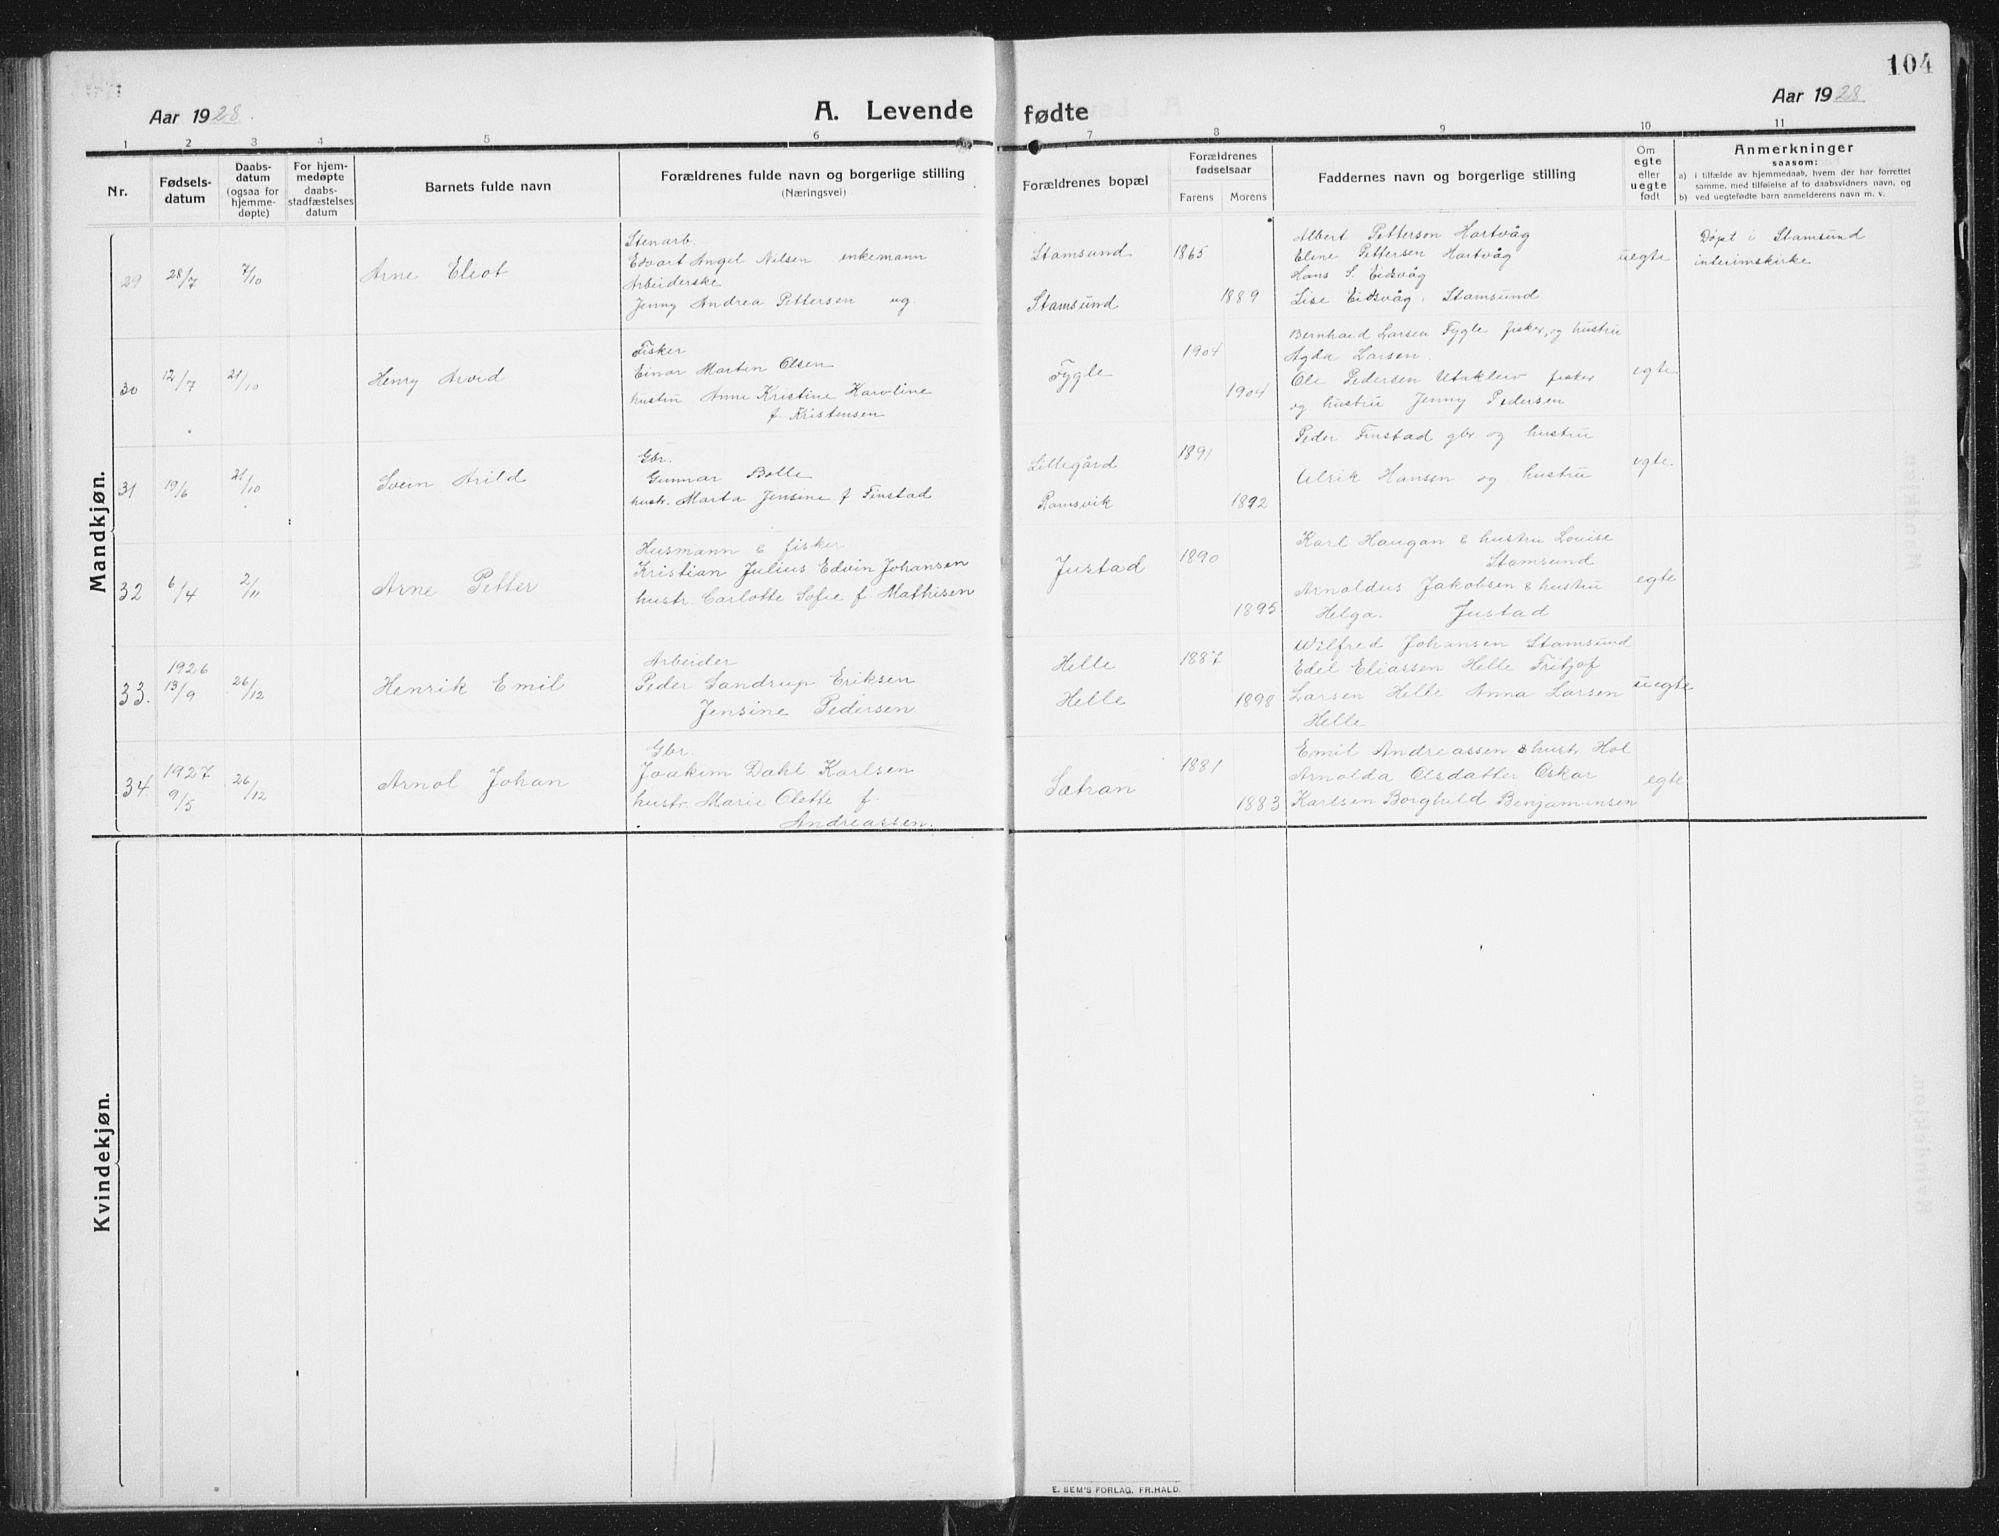 104
Aar 1928.
A. Levende fødte
Aar 1928
1 2 3 4 5 6 7 8 9 10 11
Nr.
Fødsels-
datum
Daabs-
datum
(ogsaa for
hjemme-
døpte)
For hjem-
medøpte
daabs-
stadfæstelses
datum
Barnets fulde navn
Forældrenes fulde navn og borgerlige stilling
(Næringsvei)
Forældrenes bopæl
Forældrenes
fødselsaar
Farens Morens
Faddernes navn og borgerlige stilling
Om
egte
eller
uegte
født
Anmerkninger
saasom:
a) i tilfælde av hjemmedaab, hvem der har forrettet
samme, med tilføielse af to daabsvidners navn, og
b) ved uegtefødte barn anmelderens navn m. v.
Mandkjøn.
29 28/7 7/10 Arne Eliot
Stenarb.
Edvart Angel Nilsen enkemann
Arbeiderske
Jenny Andrea Pettersen ug.
Stamsund 1865
Stamsund 1889
Albert Petterson Hartvåg
Eline Pettersen Hartvåg
Hans S. Eidsvåg
Lise Eidsvåg. Stamsund
uegte
Døpt i Stamsund
interimskirke
30 12/7 21/10 Henry Arvid
Fisker
Einar Martin Olsen
hustru Anne Kristine Karoline
f. Kristensen
Fygle 1904
1904
Bernhard Larsen Fygle fisker, og hustru
Agda Larsen.
Ole Pedersen Utakleiv fisker
og hustru Jenny Pedersen
egte
31 19/6 21/10 Svein Arild
Gbr.
Gunnar Bolle
hustr. Marta Jensine f Finstad
Lillegård 1891
Ramsvik 1892
Peder Finstad gbr og hustru
Ulrik Hansen og hustru
egte
32 6/4 2/11 Arne Petter
Husmann & fisker
Kristian Julius Edvin Johansen
hustr. Carlotte Sofie f. Mathisen
Justad 1890
1895
Karl Haugan & hustru Louise
Stamsund
Arnoldus Jakobsen & hustru
Helga. Justad
egte
33. 1926
13/9 26/12 Henrik Emil
Arbeider
Peder Sandrup Eriksen
Jensine Pedersen
Helle 1887
Helle 1898
Wilfred Johansen Stamsund
Edel Eliassen Helle Fritjof
Larsen Helle Anna Larsen
Helle
uegte
34. 1927
9/5 26/12 Arnol Johan
Gbr.
Joakim Dahl Karlsen
hustr. Marie Olette f.
Andreassen.
Sætran 1881
1883
Emil Andreassen & hustr. Hol
Arnolda Olsdatter Oskar
Karlsen Borghild Benjaminsen
egte
Kvindekjøn.
E. SEM'S FORLAG. FR.HALD.